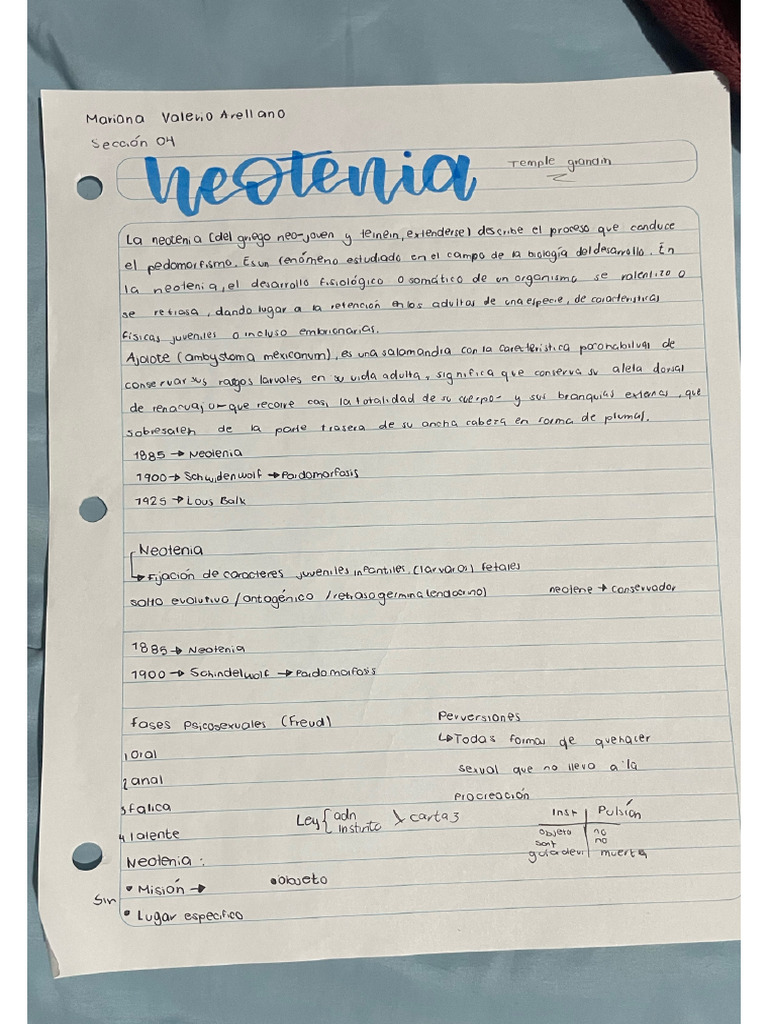 Mariana Valerio Arellano
Sección 04
neotenia
Temple grandin
La neotenia (del griego neo-joven y teinein, extenderse) describe el proceso que conduce
el pedomorfismo. Es un fenómeno estudiado en el campo de la biología del desarrollo. En
la neotenia, el desarrollo fisiológico o somático de un organismo se ralentizo o
se retrasa, dando lugar a la retención en los adultos de una especie, de características
físicas juveniles o incluso embrionarias.
Ajolote (ambystoma mexicanum), es una salamandra con la característica poco habitual de
conservar sus rasgos larvales en su vida adulta, significa que conserva su aleta dorsal
de renacuajo-que recorre casi la totalidad de su cuerpo- y sus branquias externas, que
sobresalen de la parte trasera de su ancha cabeza en forma de pluma).
1885 → Neotenia
1900 → Schwidenwolf → Paidomorfasis
1925 → Lous Balk
Neotenia
↳ Fijación de caracteres juveniles infantiles, (larvaros) fetales
salto evolutivo / ontogénico / retraso germinal endocrino) neotene → conservador
1885 → Neotenia
1900 → Schindelwolf → Paidomorfasis
fases psicosexuales (Freud)
1 oral
2 anal
3 falica
4 latente
Perversiones
↳ Todas formas de quehacer
sexual que no lleva a la
procreación
Ley { adn
instinto
carta 3
Inst | Pulsión
objeto | no
| no
| muerte
Neotenia:
Sin
• Misión →
• objeto
• Lugar especifico